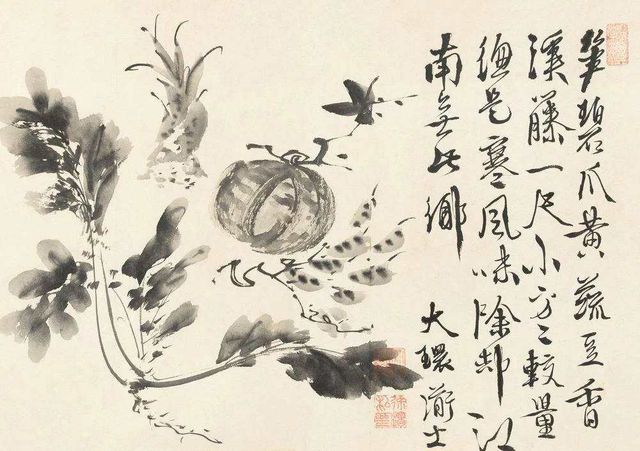 笋碧瓜黄蔬豆香
溪藤一尺小方〻較量
總是寒風味除却江
南無此鄉
大環士